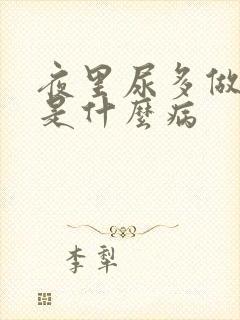 夜里尿多做
是什麼病
李犁